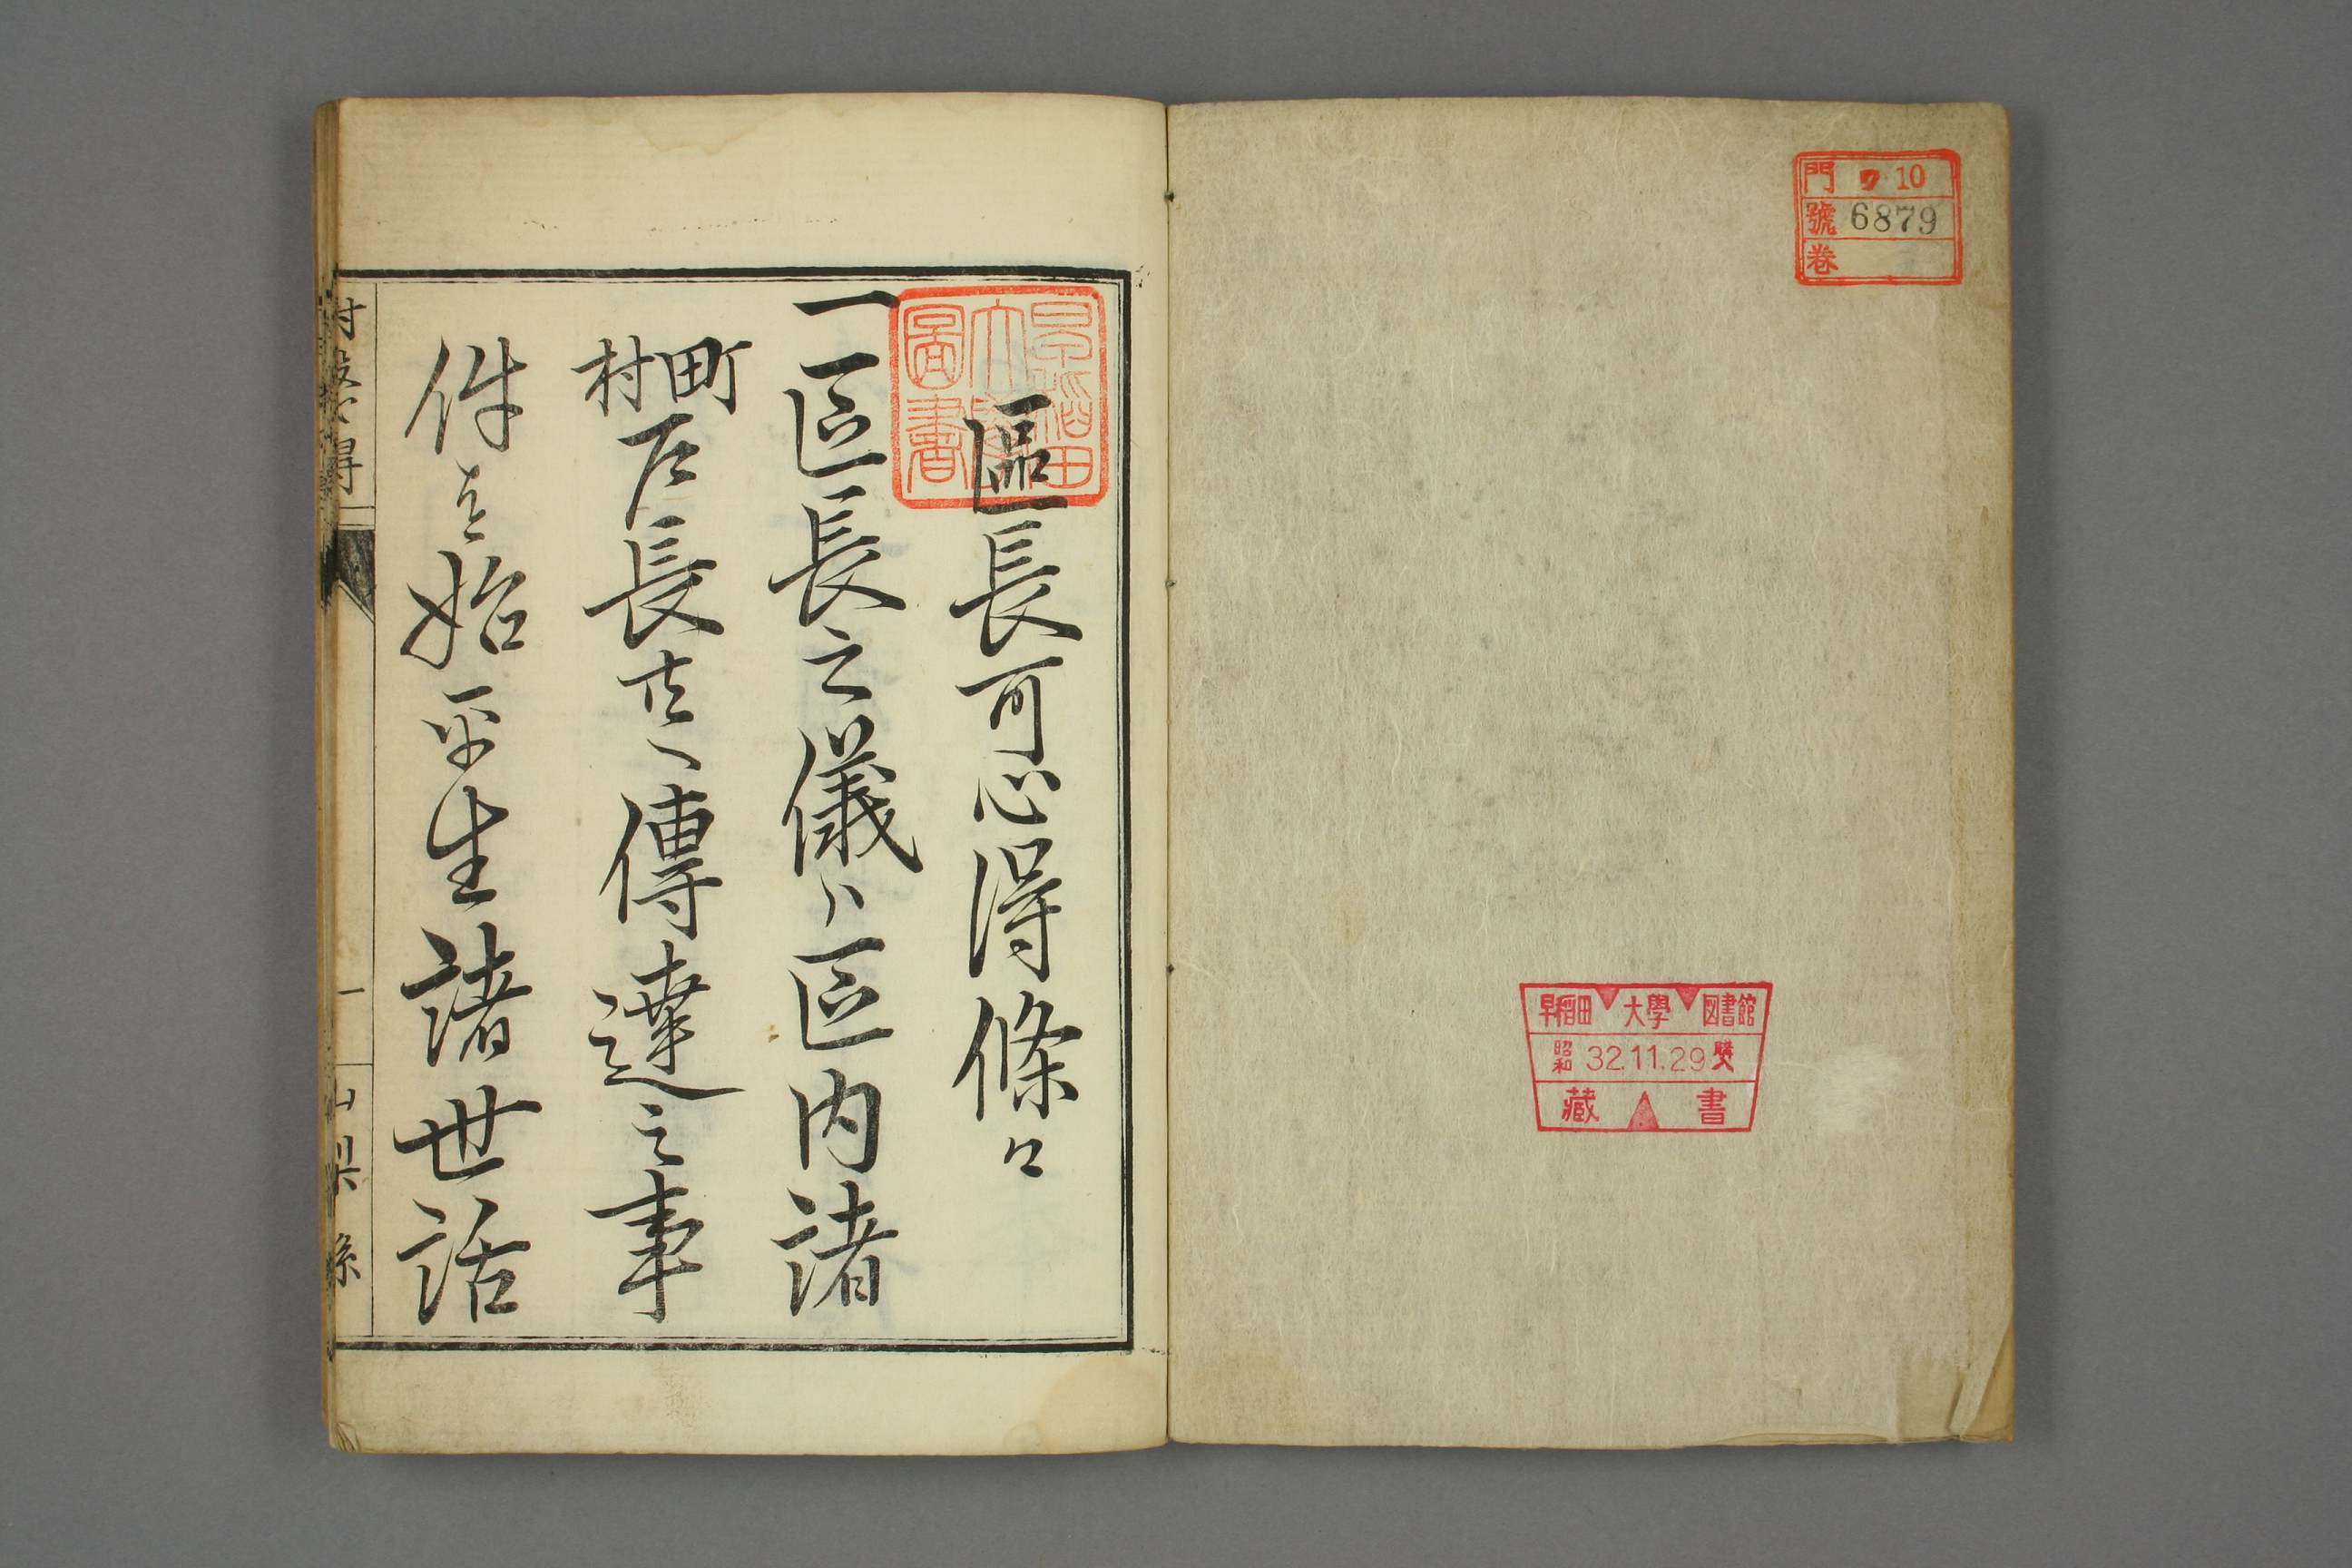 門 ヲ 10
號 6879
卷
早稲田 大學 図書館
昭和 32.11.29 購求
藏 書
早稲田
大學
圖書
區長可心得條々
一区長之儀ハ区内諸
町村戸長共へ傳達之事
件を始平生諸世話
村役心得
一
山梨縣